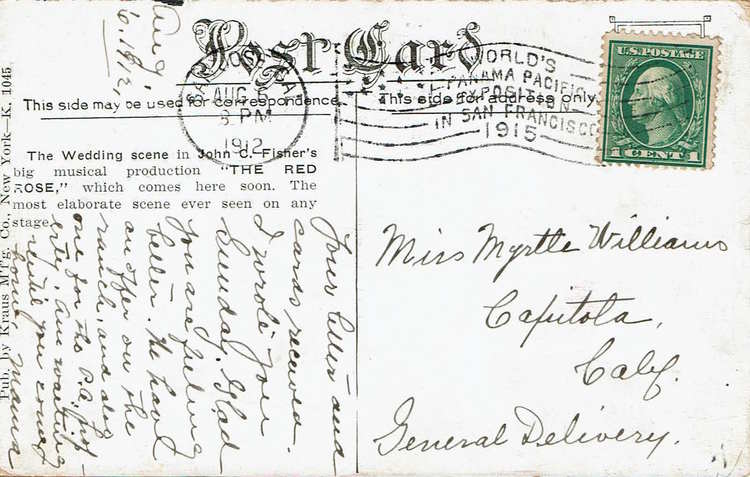 Post Card
This side may be used for correspondence.
This side for address only.
SAN JOSE, CA
AUG 6
8 PM
1912
WORLD'S
PANAMA PACIFIC
EXPOSITION
IN SAN FRANCISCO
1915
U.S. POSTAGE
1 CENT 1
The Wedding scene in John C. Fisher's
big musical production "THE RED
ROSE," which comes here soon. The
most elaborate scene ever seen on any
stage.
Pub. by Kraus M'f'g. Co., New York—K, 1045
Aug,
6, 1912,
Your letter and
cards received.
I wrote you
Sunday. Glad
you are feeling
better. We have
an offer on the
ranch, and also
one for the P.A.
ever. Am waiting
until you come
home, Mama
Miss Myrtle Williams
Capitola,
Calif.
General Delivery.